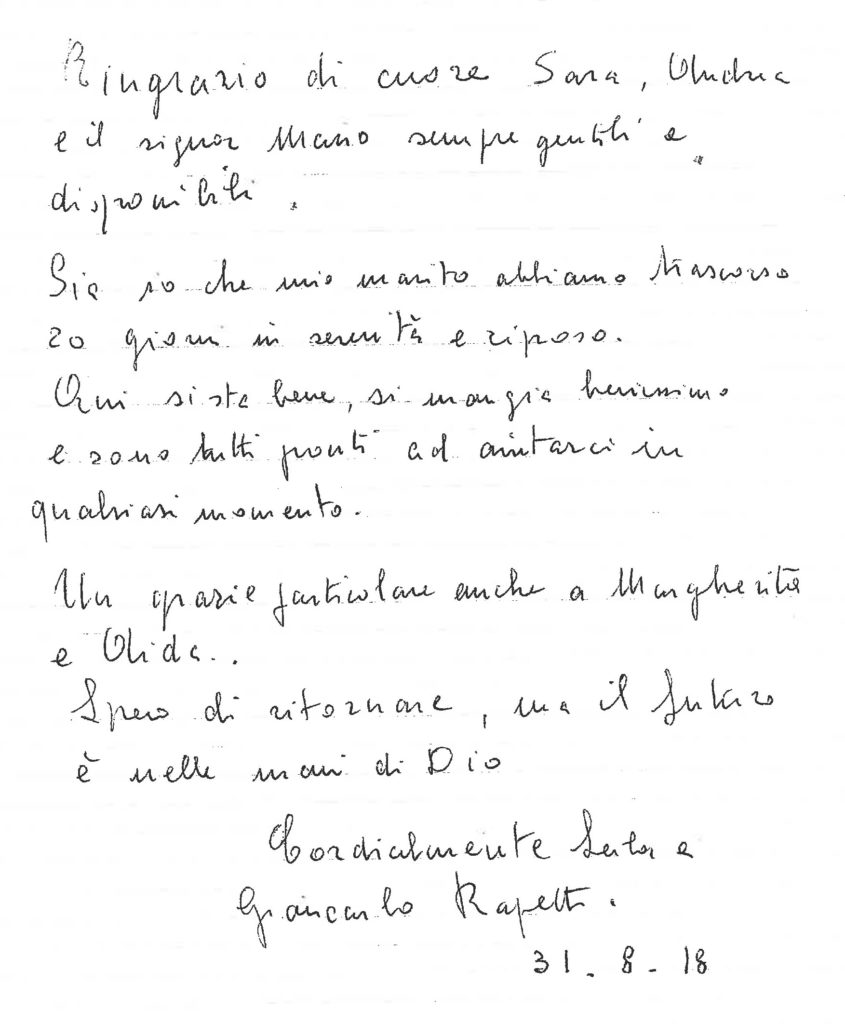 Ringrazio di cuore Sara, Andrea
e il signor Mario sempre gentili e
disponibili.
Sia io che mio marito abbiamo trascorso
20 giorni in serenità e riposo.
Qui si sta bene, si mangia benissimo
e sono tutti pronti ad aiutarci in
qualsiasi momento.
Un grazie particolare anche a Margherita
e Alida..
Spero di ritornare, ma il futuro
è nelle mani di Dio
Cordialmente e
Giancarlo Rapetti.
31-8-18